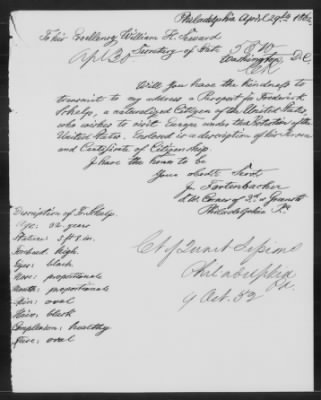 Philadelphia April 29th 1862
To his Excellency William H. Seward
Secretary of State
Apl 30
Washington, D.C.
Will you have the kindness to
transmit to my address a Passport for Frederick
a naturalized Citizen of the United States,
who wishes to visit Europe under the Protection of the
United States. Enclosed is a description of his Person
and Certificate of Citizenship.
I have the honor to be
Your obedt Servt
Philadelphia Pa.
Description of F.
Age: 32 years
Stature: 5 ft 8 in.
Forehead: high.
Eyes: black
Nose: proportionate
Mouth: proportionate
Chin: oval
Hair: black
Complexion: healthy
Face: oval
Ct of Quart Sessions
Philadelphia
Pa.
9 Oct. 52